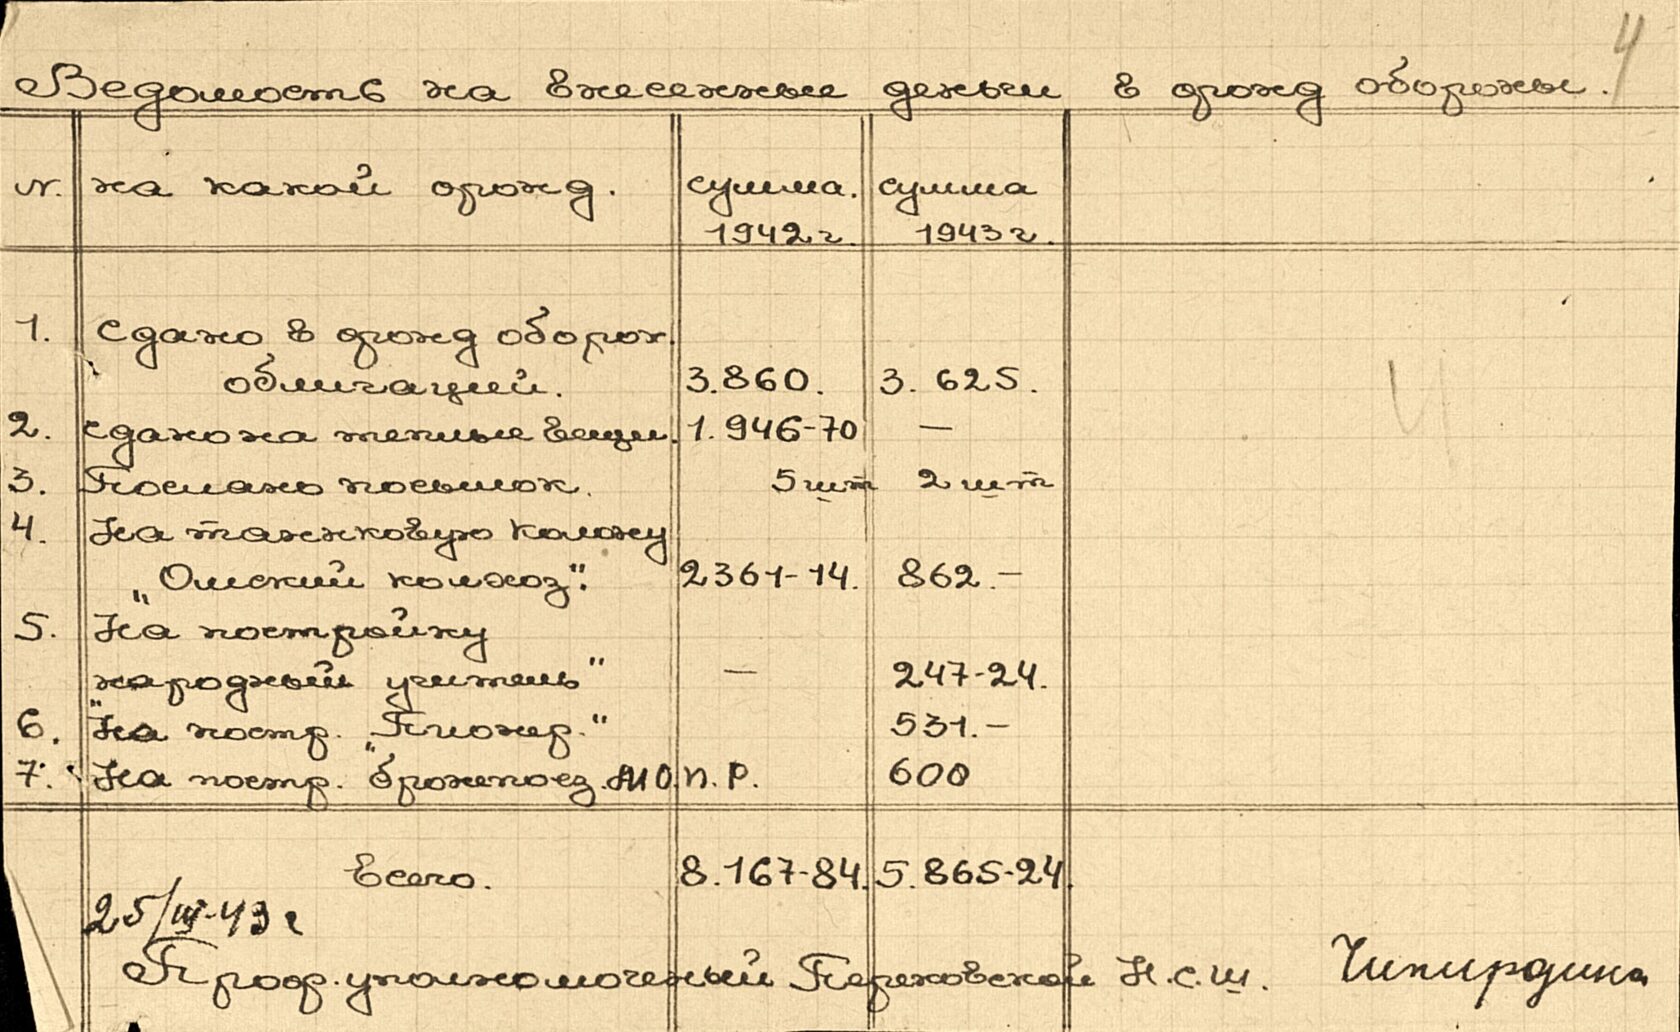 4
Ведомость на внесенные деньги в фонд обороны.
N. на какой фонд. сумма. сумма
1942 г. 1943 г.
1. Сдано в фонд оборон.
облигаций. 3.860. 3.625.
2. Сдано на теплые вещи. 1.946-70 —
3. Послано посылок. 5 шт 2 шт
4. На танковую колону
„Омский колхоз". 2361-14. 862.-
5. На постройку
„народный учитель" — 247-24.
6. На постр. „Пионер." 531.-
7. На постр. „бронепоез. М О.П.Р. 600
Всего. 8.167-84. 5.865-24.
25/III-43 г
Проф. уполномоченый Перновской Н.С.Ш.